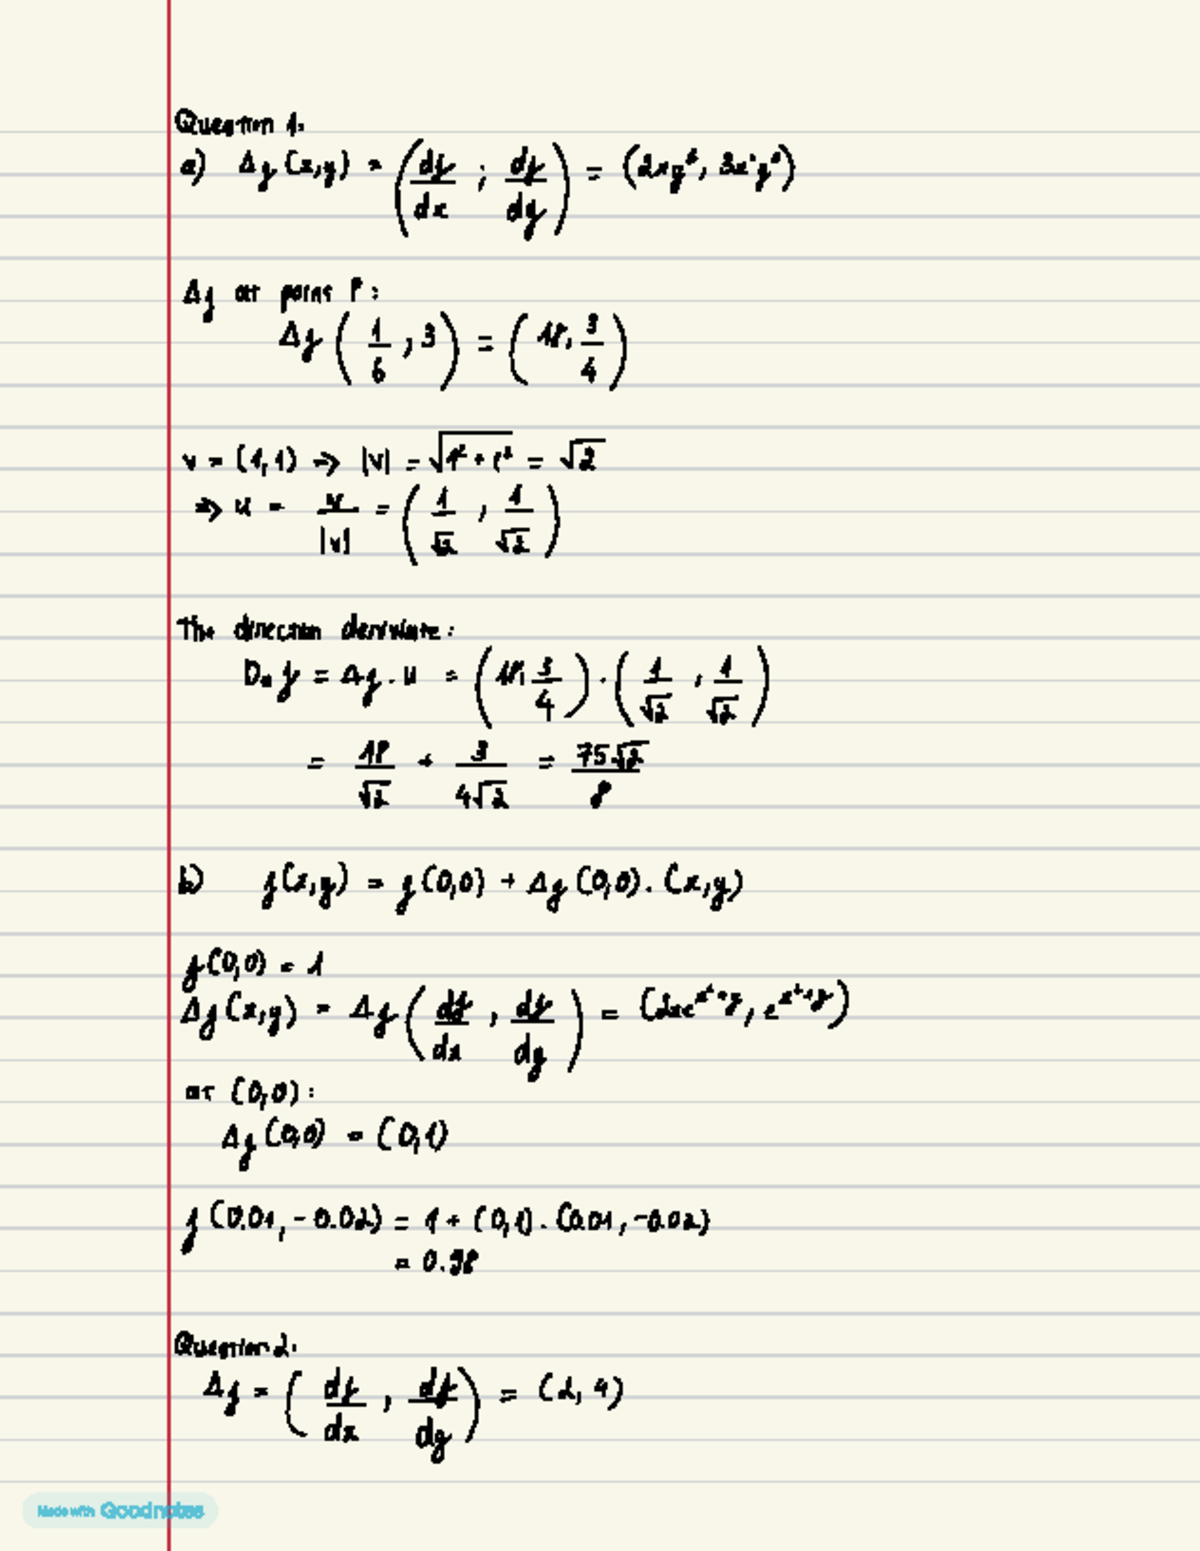 Question 1:
a) Δf(x,y) = (df/dx ; df/dy) = (2xy³, 3x²y²)
Δf at point P:
Δf(1/6, 3) = (18, 3/4)
v = (1,1) => |v| = √(1² + 1²) = √2
=> u = v/|v| = (1/√2, 1/√2)
The direction deriviate:
Duf = Δf . u = (18, 3/4) . (1/√2, 1/√2)
= 18/√2 + 3/4√2 = 75√2/8
b) f(x,y) = f(0,0) + Δf(0,0). (x,y)
f(0,0) = 1
Δf(x,y) = Δf(df/dx, df/dy) = (2xe^(x²+y), e^(x²+y))
at (0,0):
Δf(0,0) = (0,1)
f(0.01, -0.02) = 1 + (0,1). (0.01, -0.02)
= 0.98
Question 2:
Δf = (df/dx, df/dy) = (2, 4)
Made with Goodnotes